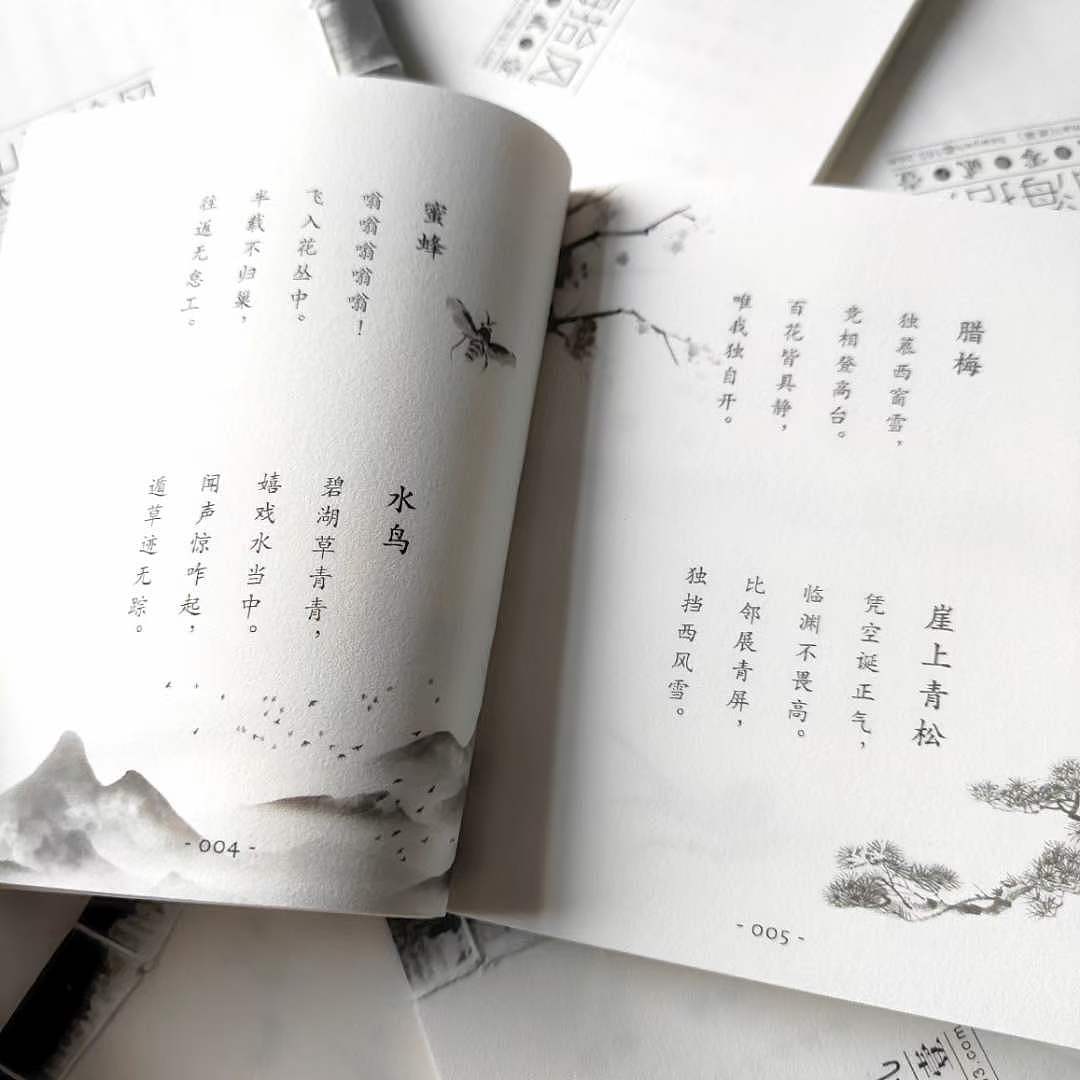 蜜蜂
嗡嗡嗡嗡嗡！
飞入花丛中。
半载不归巢，
往返无怠工。
水鸟
碧湖草青青，
嬉戏水当中。
闻声惊咋起，
遁草迹无踪。
- 004 -
腊梅
独慕西窗雪，
竞相登高台。
百花皆具静，
唯我独自开。
崖上青松
凭空诞正气，
临渊不畏高。
比邻展青屏，
独挡西风雪。
- 005 -
海拾风
贰●零●壹
海拾